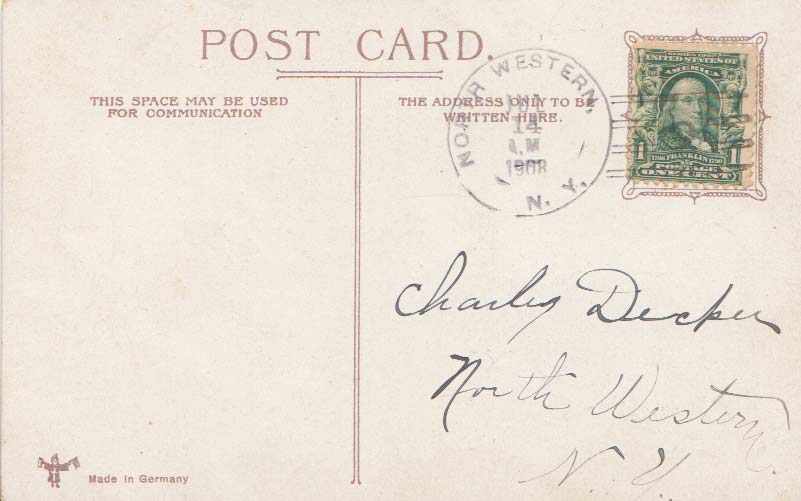 POST CARD.
THIS SPACE MAY BE USED
FOR COMMUNICATION
THE ADDRESS ONLY TO BE
WRITTEN HERE.
NORTH WESTERN,
JUL
14
A.M
1908
N. Y.
SERIES 1902
UNITED STATES OF
AMERICA
1706 FRANKLIN 1790
1 1
POSTAGE
ONE CENT
Charley Decker
North Western
N. Y.
Made in Germany